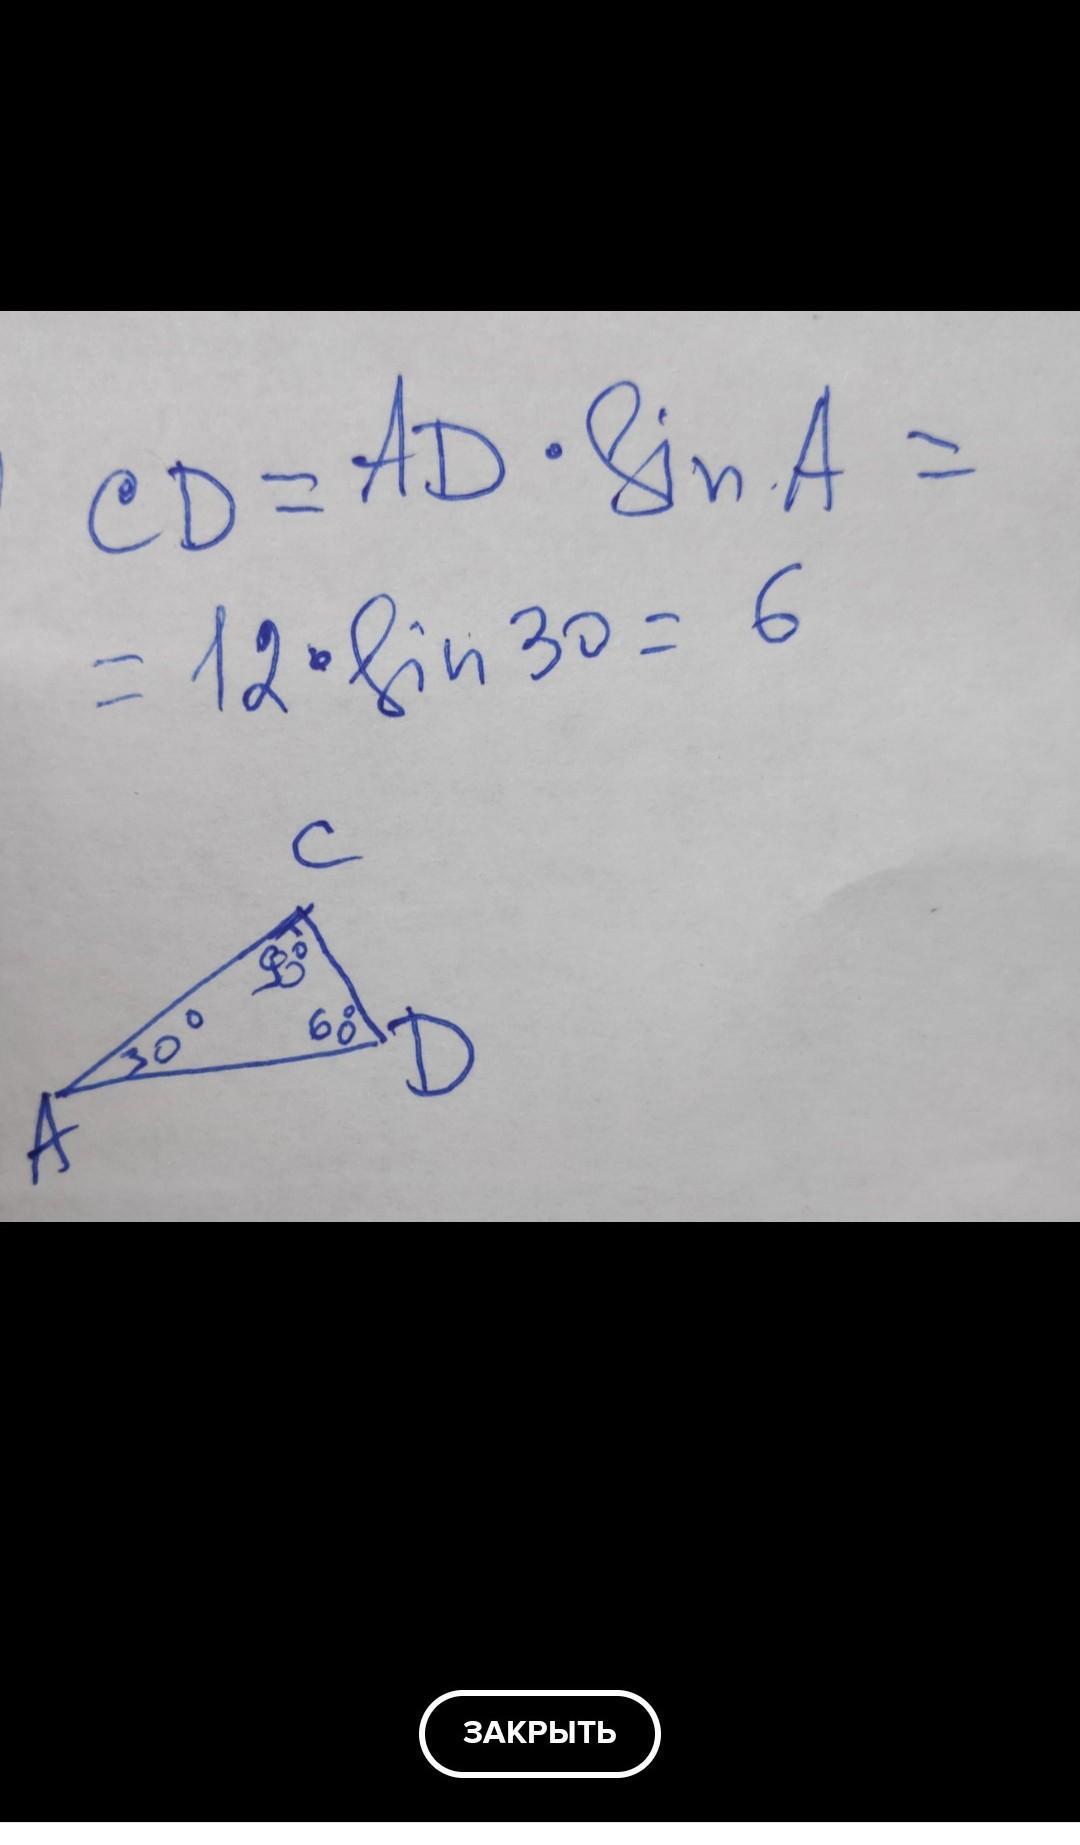 CD = AD · sin A =
= 12 · sin 30 = 6
C
90°
30°
60°
D
A
ЗАКРЫТЬ